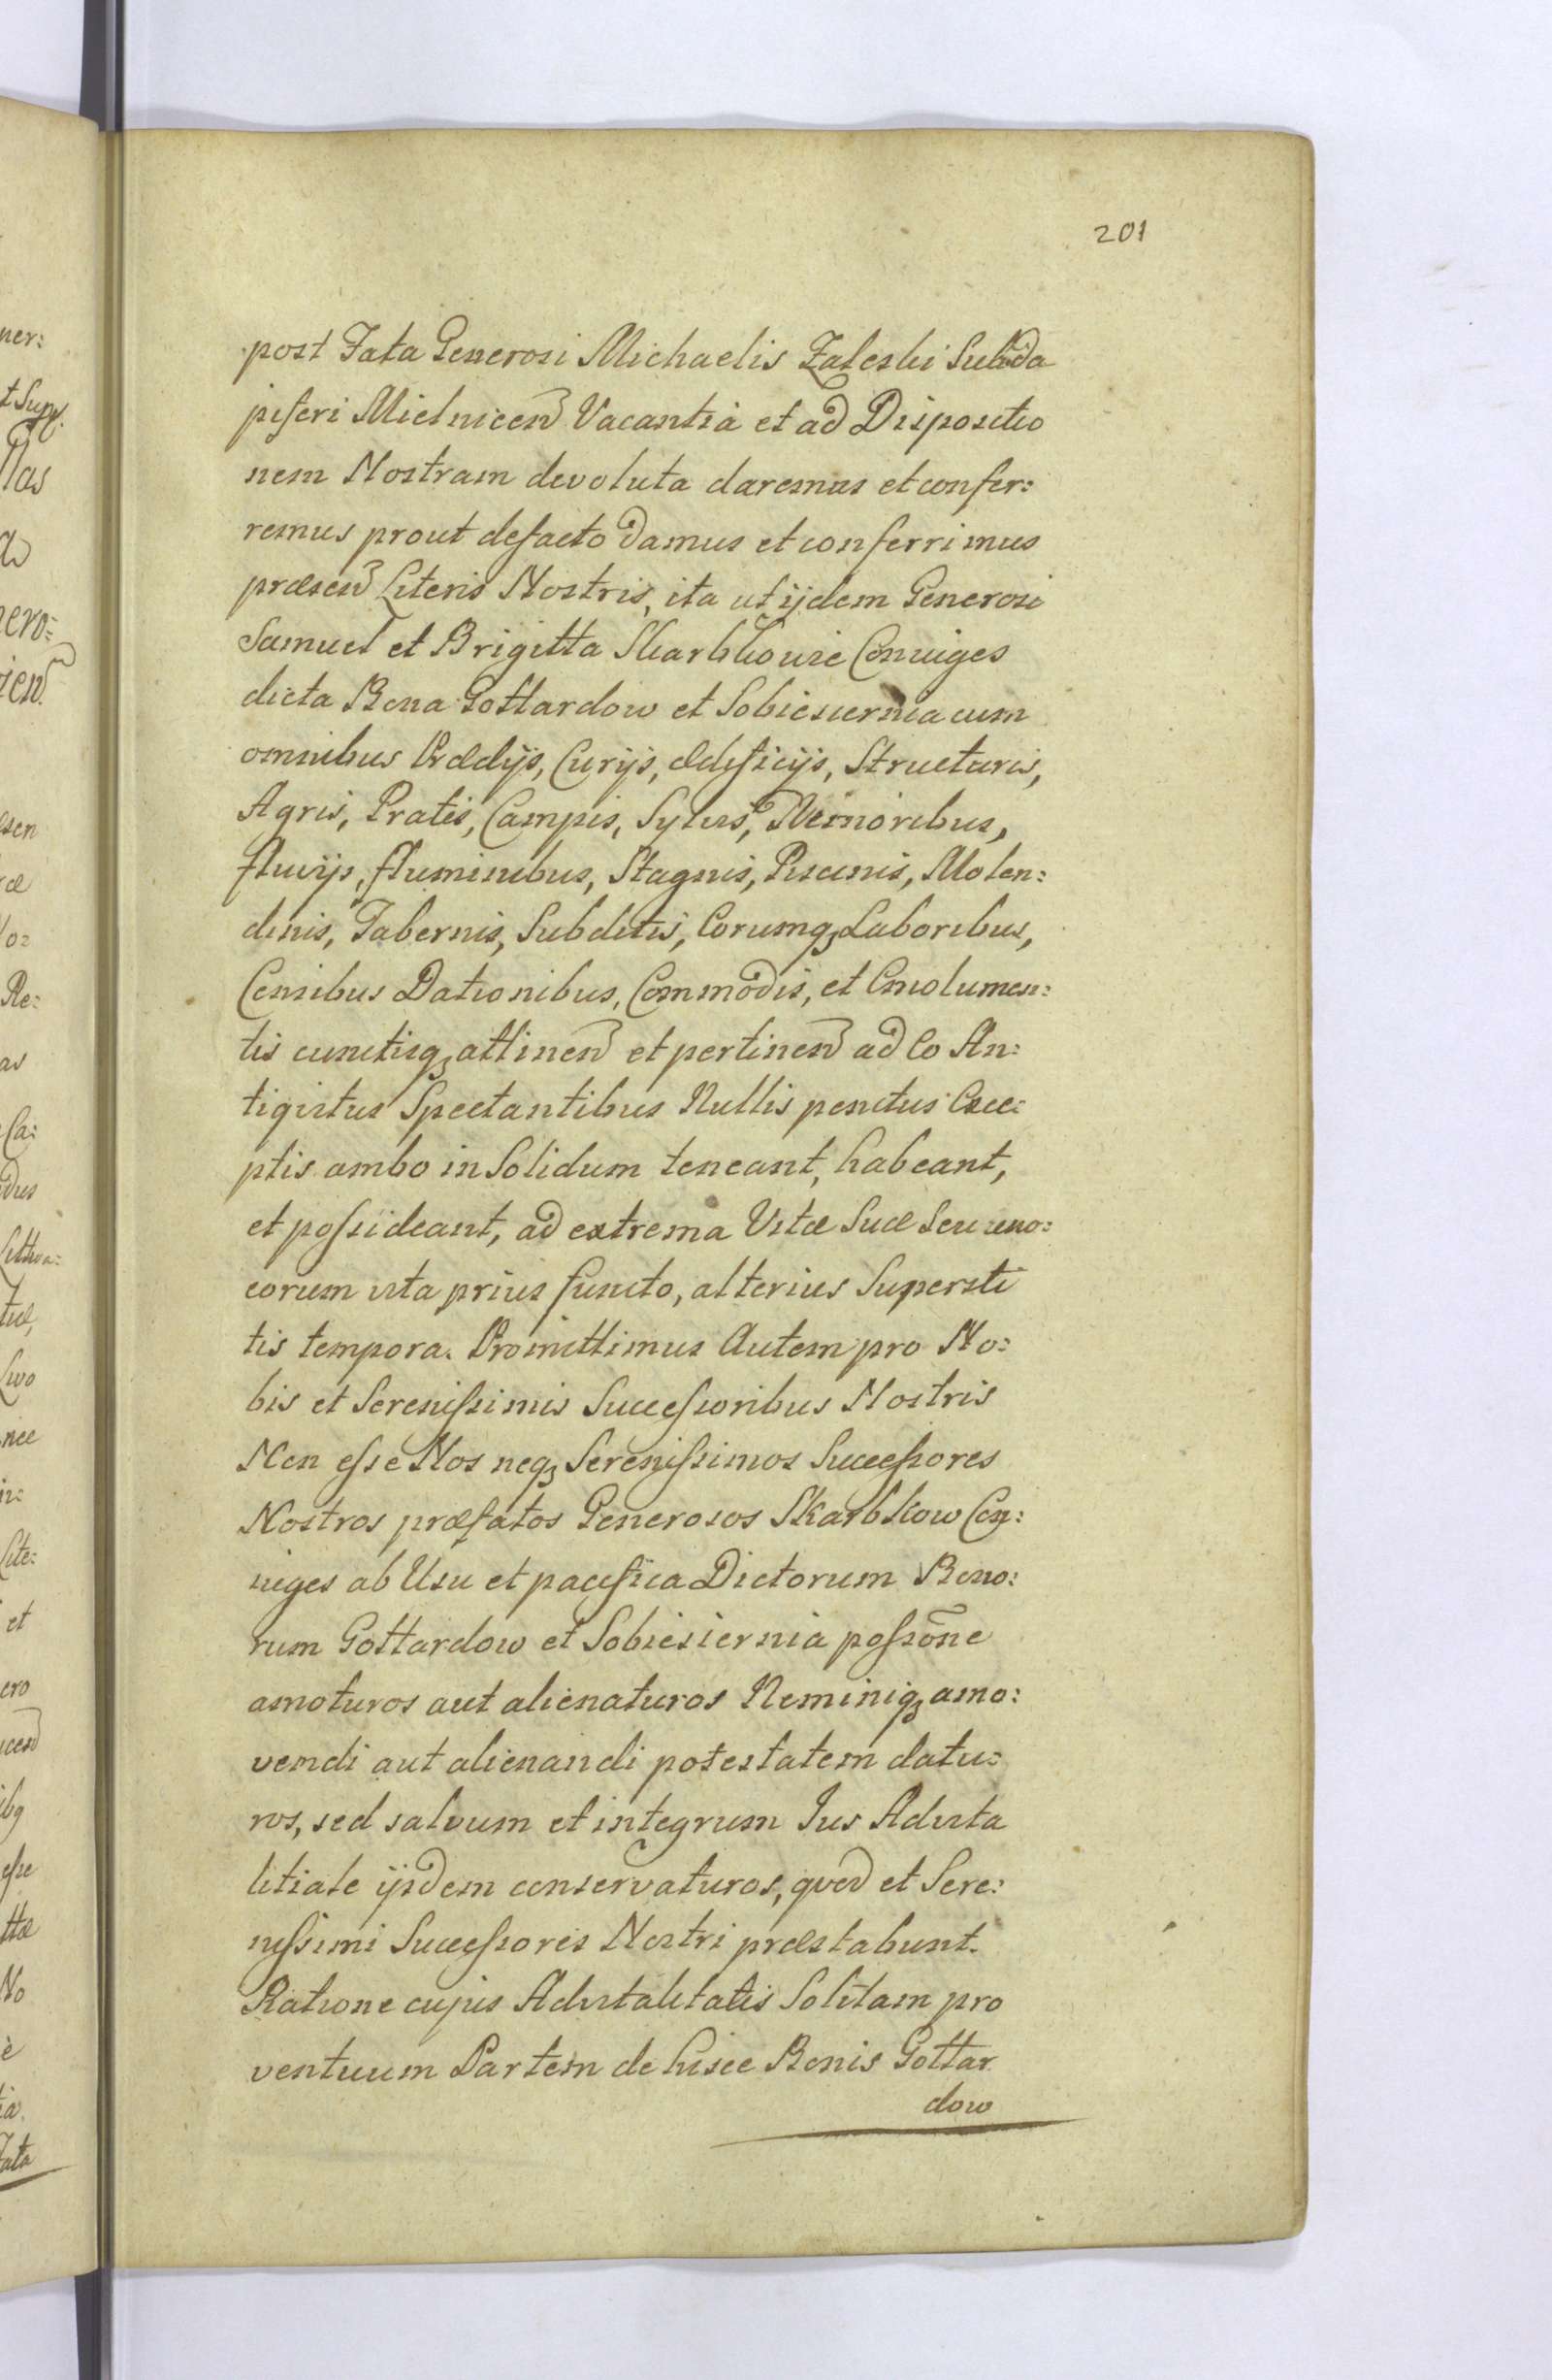 201
post Fata Generosi Michaelis Zaleski Subda
piferi Mielnicen Vacantia et ad Dispositio
nem Nostram devoluta daremus et confer:
remus prout defacto damus et conferrimus
præsen Literis Nostris, ita ut ijdem Generosi
Samuel et Brigitta Skarbkowie Conuiges
dicta Bona Gottardow et Sobiesiernia cum
omnibus Prædijs, Curijs, ædificijs, Structuris,
Agris, Pratis, Campis, Sylvis, Nemoribus,
fluvijs, fluminibus, Stagnis, Piscinis, Molen:
dinis, Tabernis, Subditis, Eorumq₃ Laboribus,
Censibus Dationibus, Commodis, et Emolumen:
tis cunctisq₃ attinen et pertinen ad Eo An:
tiqvitus Spectantibus Nullis penitus Exce:
ptis ambo in Solidum teneant, habeant,
et possideant, ad extrema Vitæ Suæ Seu uno:
eorum vita prius functo, alterius Supersti
tis tempora. Promittimus Autem pro No:
bis et Serenissimis Successoribus Nostris
Non esse Nos neq₃ Serenissimos Successores
Nostros præfatos Generosos Skarbkow Con:
iuges ab Usu et pacifica Dictorum Bono:
rum Gottardow et Sobiesiernia possōne
amoturos aut alienaturos Neminiq₃ amo:
vendi aut alienandi potestatem datu:
ros, sed salvum et integrum Jus Advita
litiale ijsdem conservaturos, qvod et Sere:
nissimi Successores Nostri præstabunt.
Ratione cujus Advitalitatis Solitam pro
ventuum Partem de hisce Bonis Gottar
dow